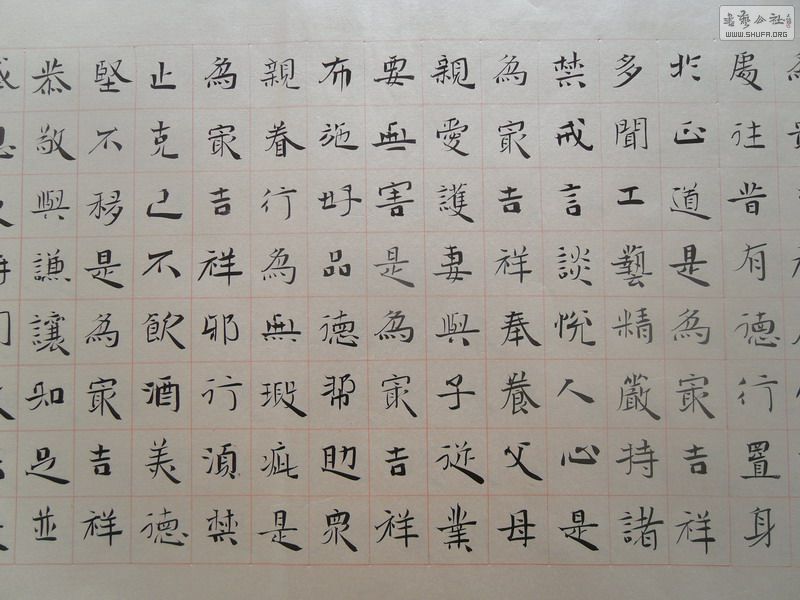 處往昔有德行置身
於正道是為冣吉祥
多聞工藝精嚴持諸
禁戒言談悅人心是
為冣吉祥奉養父母
親愛護妻與子從業
要無害是為冣吉祥
布施好品德幫助眾
親眷行為無瑕疵是
為冣吉祥邪行須禁
止克己不飲酒美德
堅不移是為冣吉祥
恭敬與謙讓知足並
書藝公社
WWW.SHUFA.ORG